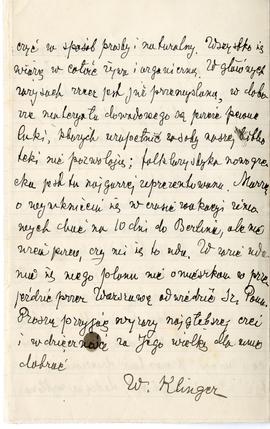 czyć w sposób prosty i naturalny. Wszystko się
wiąże w całość żywą i organiczną. W głównych
zarysach rzecz jest już przemyślana, w dobo-
rze materyału dowodowego są pewne
luki, których uzupełnić zasoby naszej biblio-
teki nie pozwolą; folklorystyka nowogre-
cka jest tu najgorzej reprezentowana. Marzę
o wymknięciu się w czasie wakacji zimo-
wych choć na 10 dni do Berlina, ale nie
wiem, czy mi się to uda. W razie uda-
nia się mego planu nie omieszkam w prze-
jeździe przez Warszawę odwiedzić Sz. Pana.
Proszę przyjąć wyrazy najgłębszej czci
i wdzięczności za Jego wielką dla mnie
dobroć
W. Klinger